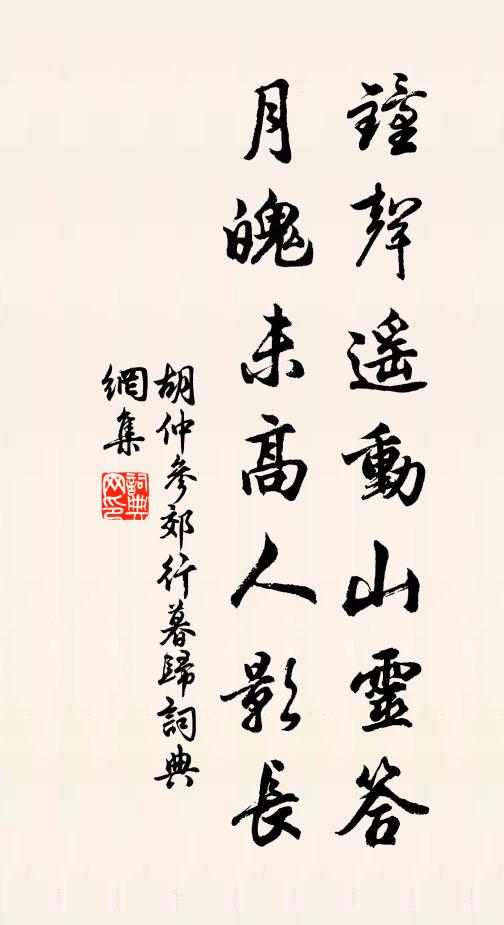 鐘聲遥動山靈答
月魄未高人影長
胡仲參郊行暮歸詞典
網集
詞典
网印